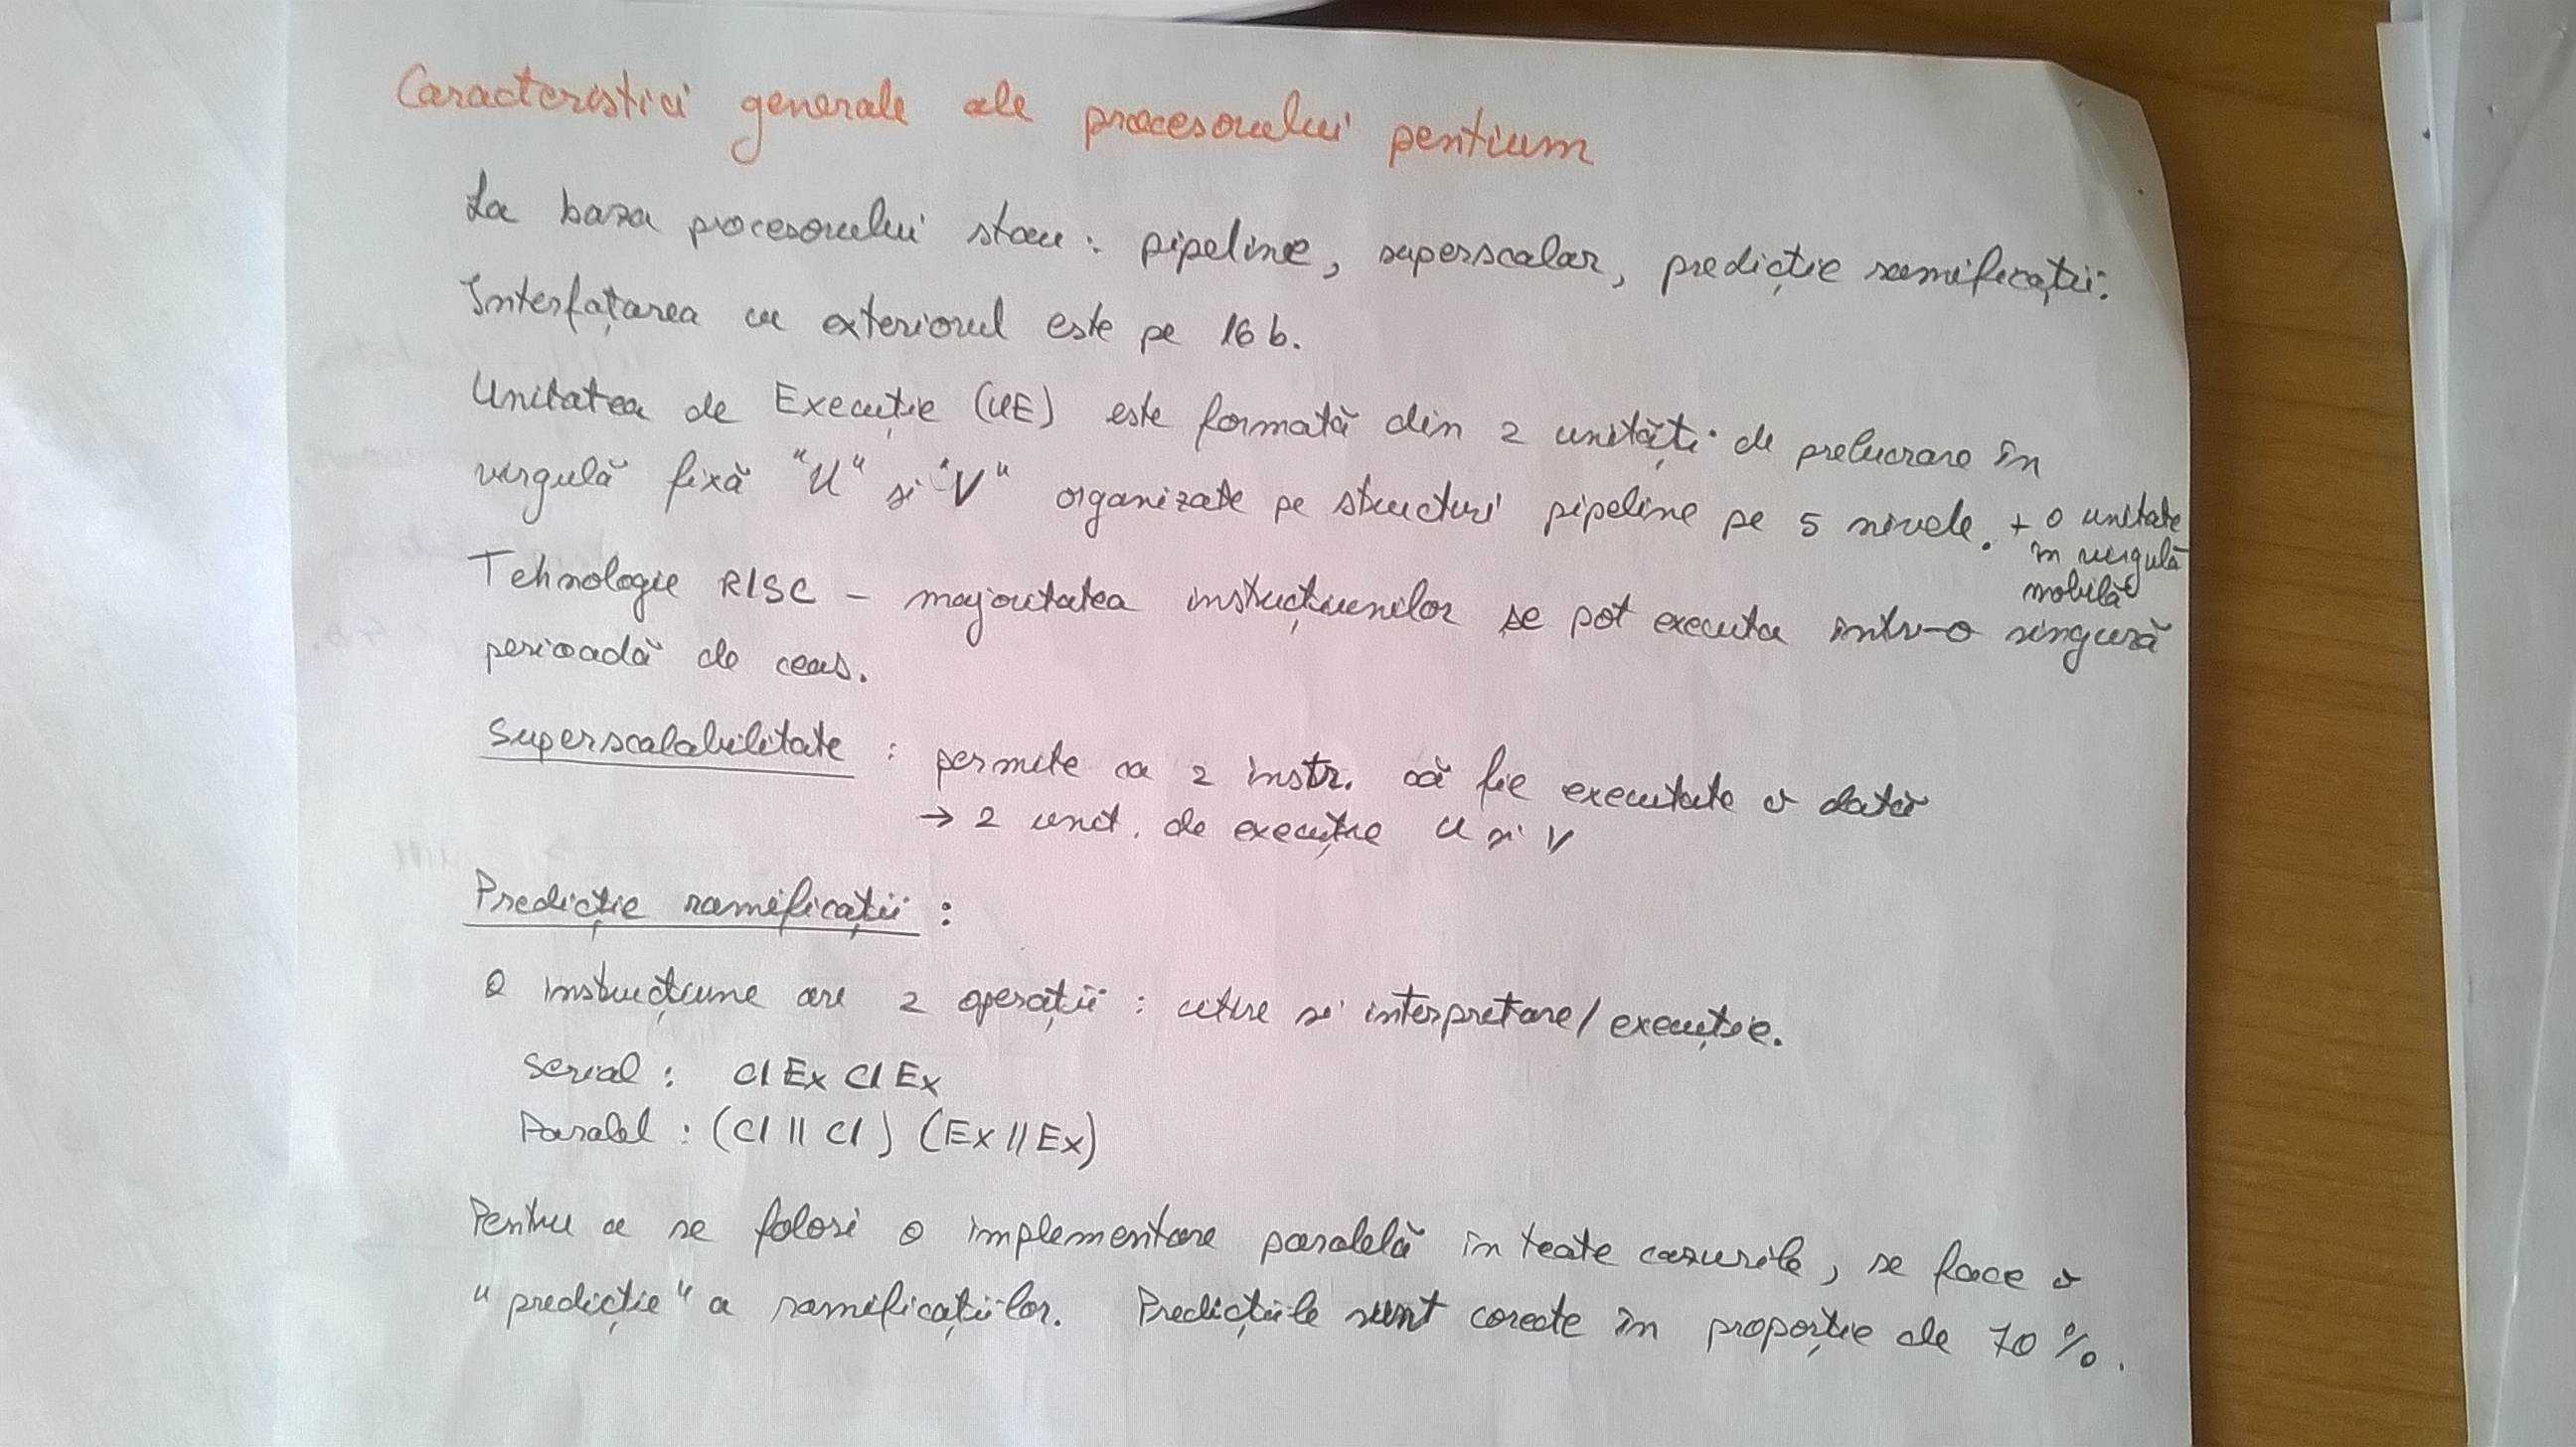 Caracteristici generale ale procesorului pentium
La baza procesorului stau : pipeline, superscalar, predicție ramificații.
Interfațarea cu exteriorul este pe 16 b.
Unitatea de Execuție (UE) este formată din 2 unități de prelucrare în
virgulă fixă "U" si "V" organizate pe structuri pipeline pe 5 nivele. + o unitate
în virgulă
mobilă
Tehnologie RISC – majoritatea instrucțiunilor se pot executa într-o singură
perioadă de ceas.
Superscalabilitate : permite ca 2 instr. să fie executate o dată
→ 2 unit. de execuție U si V
Predicție ramificații :
O instrucțiune are 2 operații : citire si interpretare/execuție.
Serial : CI Ex CI Ex
Paralel : (CI || CI) (Ex // Ex)
Pentru a se folosi o implementare paralelă în toate cazurile, se face o
"predicție" a ramificațiilor. Predicțiile sunt corecte în proporție de 70 %.